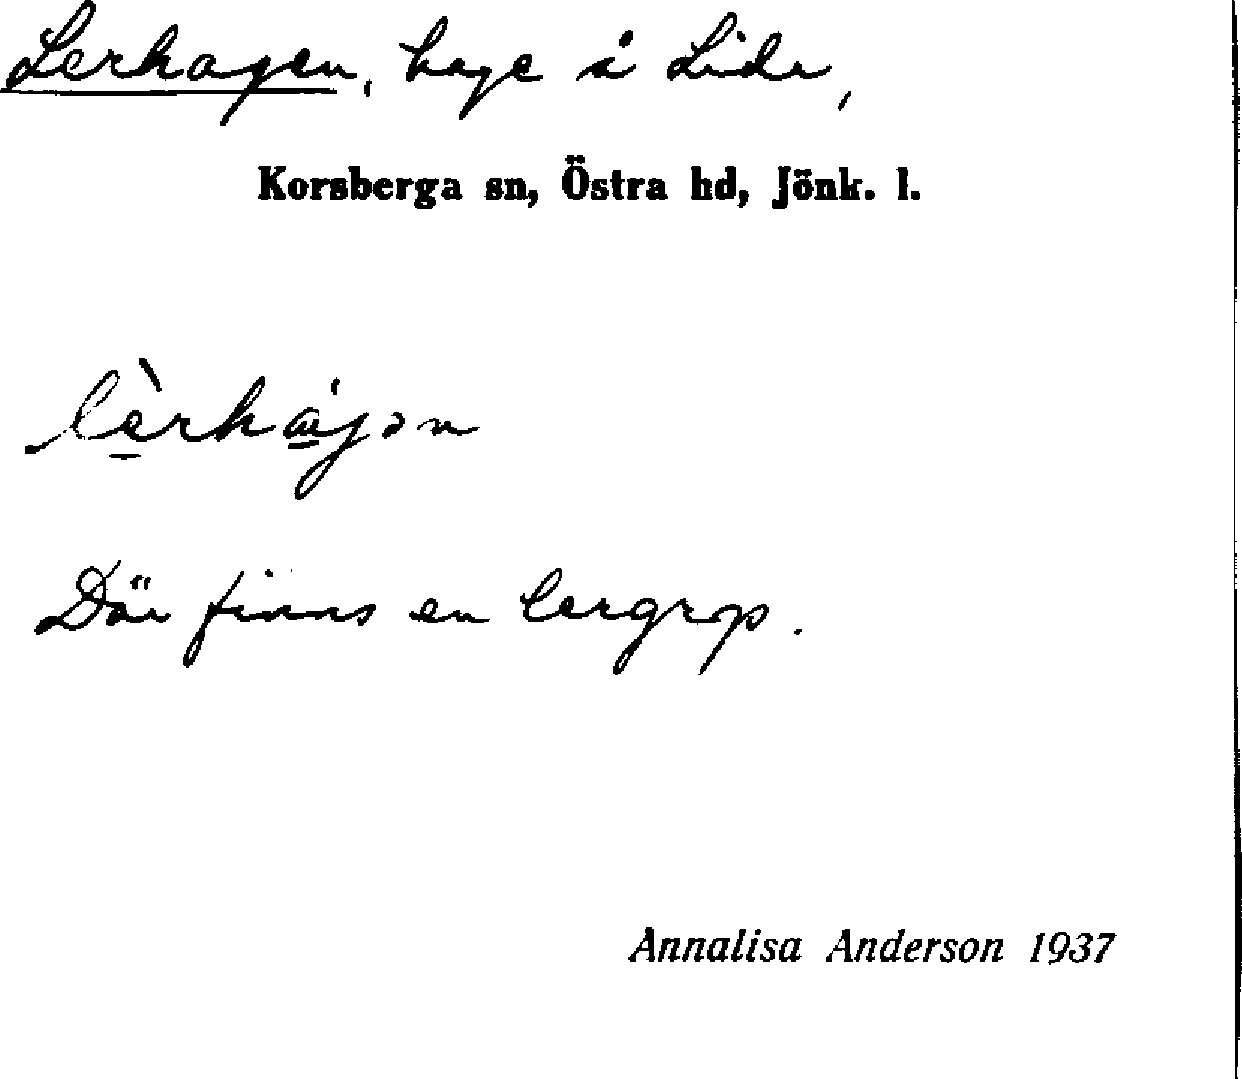 Lerhagen, hage å Lida,
Korsberga sn, Östra hd, Jönk. l.
lèrhájən
Där finns en lergrop.
Annalisa Anderson 1937